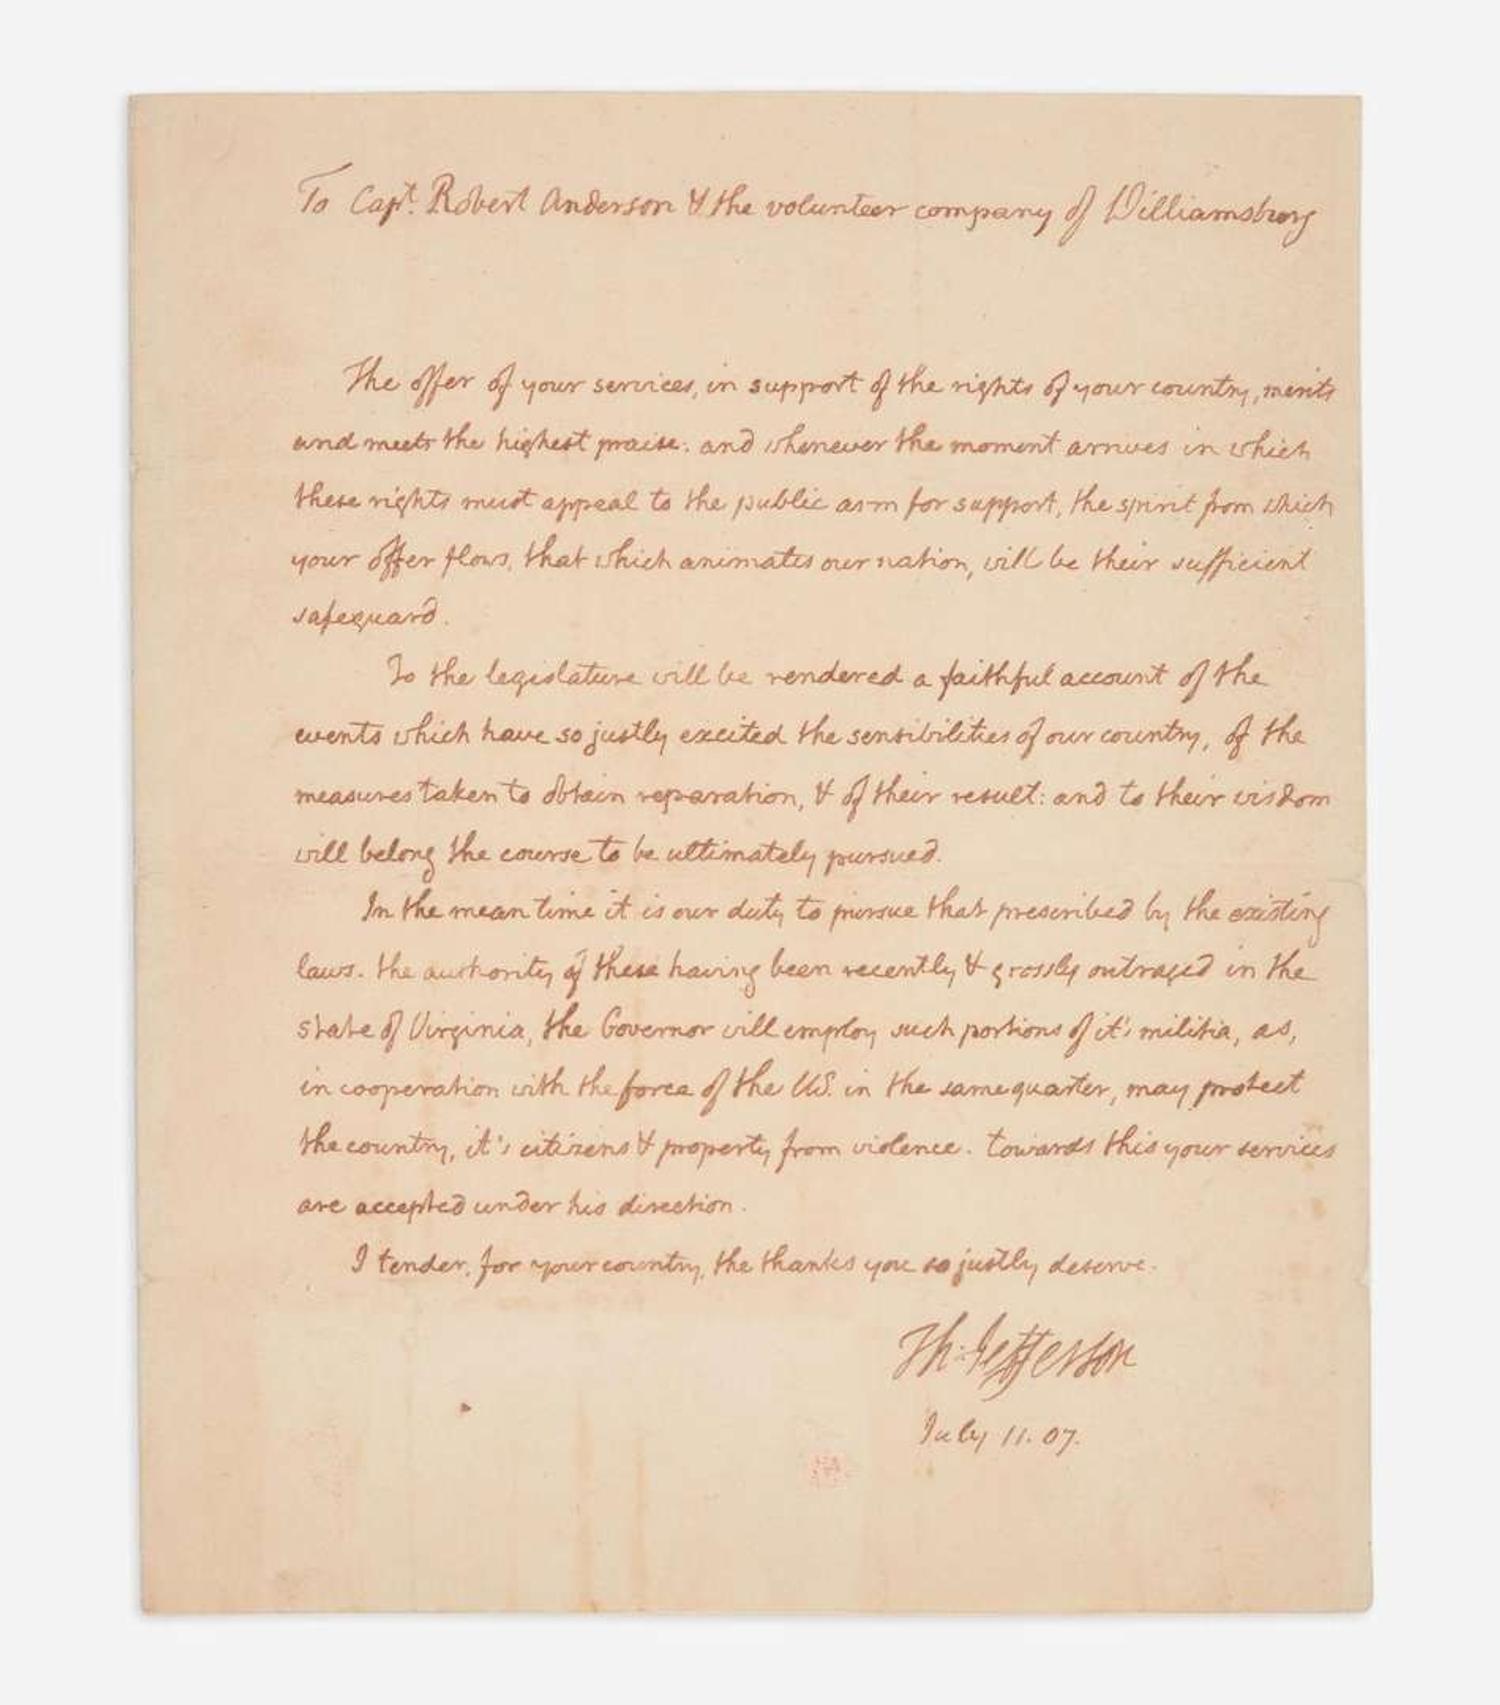 To Capt. Robert Anderson & the volunteer company of Williamsburg
The offer of your services, in support of the rights of your country, merits
and meets the highest praise: and whenever the moment arrives in which
these rights must appeal to the public arm for support, the spirit from which
your offer flows, that which animates our nation, will be their sufficient
safeguard.
To the legislature will be rendered a faithful account of the
events which have so justly excited the sensibilities of our country, of the
measures taken to obtain reparation, & of their result: and to their wisdom
will belong the course to be ultimately pursued.
In the mean time it is our duty to pursue that prescribed by the existing
laws. the authority of these having been recently & grossly outraged in the
state of Virginia, the Governor will employ such portions of it's militia, as,
in cooperation with the force of the US. in the same quarter, may protect
the country, it's citizens & property from violence. towards this your services
are accepted under his direction.
I tender, for your country, the thanks you so justly deserve.
Th: Jefferson
July 11. 07.